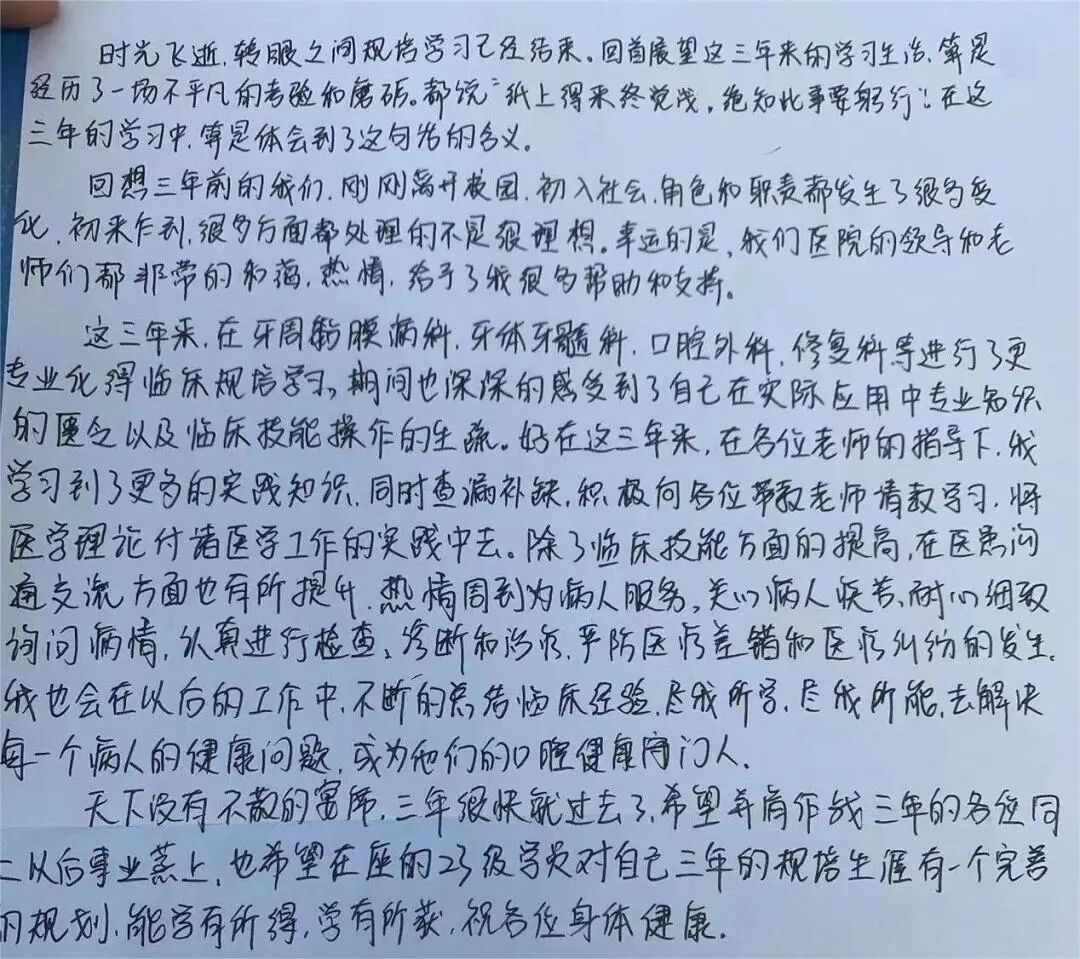 时光飞逝,转眼之间规培学习已经结束。回首展望这三年来的学习生活,算是
经历了一场不平凡的考验和磨砺。都说“纸上得来终觉浅,绝知此事要躬行”,在这
三年的学习中,算是体会到了这句话的含义。
回想三年前的我们,刚刚离开校园,初入社会,角色和职责都发生了很多变
化,初来乍到,很多方面都处理的不是很理想。幸运的是,我们医院的领导和老
师们都非常的和蔼,热情,给予了我很多帮助和支持。
这三年来,在牙周黏膜病科,牙体牙髓科,口腔外科,修复科等进行了更
专业化得临床规培学习,期间也深深的感受到了自己在实际应用中专业知识
的匮乏以及临床技能操作的生疏。好在这三年来,在各位老师的指导下,我
学习到了更多的实践知识,同时查漏补缺,积极向各位带教老师请教学习,将
医学理论付诸医学工作的实践中去。除了临床技能方面的提高,在医患沟
通交流方面也有所提升,热情周到为病人服务,关心病人疾苦,耐心细致
询问病情,认真进行检查、诊断和治疗,严防医疗差错和医疗纠纷的发生,
我也会在以后的工作中,不断的总结临床经验,尽我所学,尽我所能,去解决
每一个病人的健康问题,成为他们的口腔健康守门人。
天下没有不散的宴席,三年很快就过去了,希望并肩作战三年的各位同
以后事业蒸上,也希望在座的23级学员对自己三年的规培生涯有一个完善
的规划,能学有所得,学有所获,祝各位身体健康.